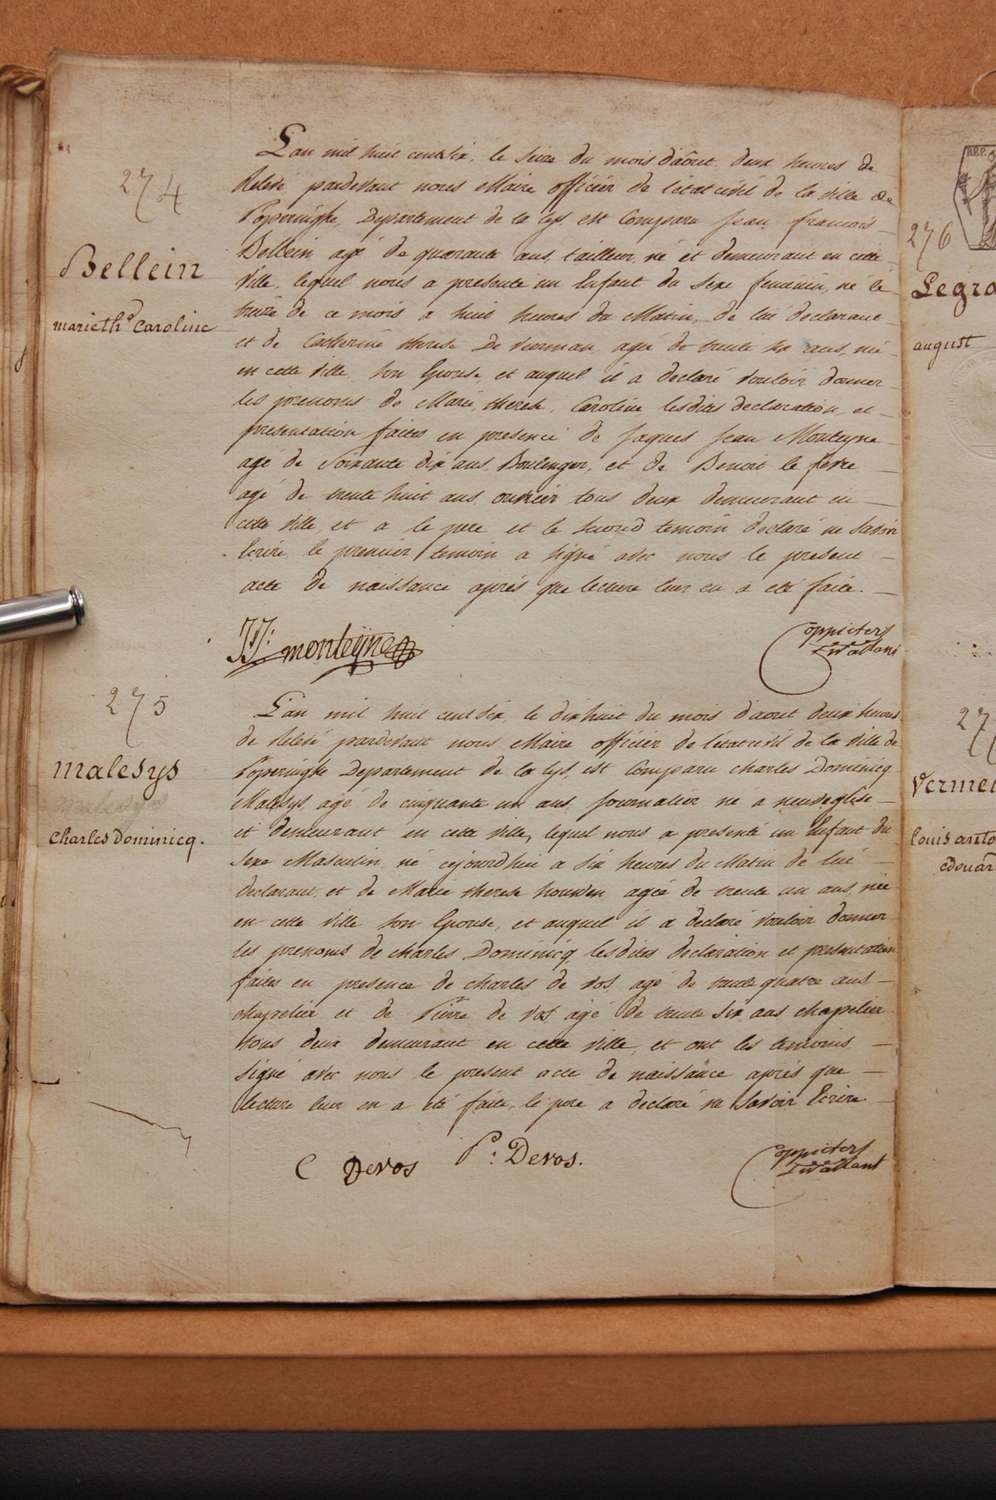 274
Bellein
marie thé Caroline
L'an mil huit cent six, le seize du mois d'août deux heures de
Relevé pardevant nous Maire officier de l'état civil de la ville de
Poperinghe, Departement de la Lys est Comparu Jean francois
Bellein agé de quarante ans, tailleur né et demeurant en cette
ville, lequel nous a presenté un Enfant du Sexe feminin, né le
treize de ce mois a huit heures du Matin, de lui declarant
et de Catherine therese De agée de trente six ans, née
en cette ville son Epouse, et auquel il a declaré vouloir donner
les prenoms de Marie, therese, Caroline lesdites declaration et
presentation faites en presence de Jaques Jean Monteyne
agé de Soixante dix ans Boulenger, et de Benoit le febre
agé de trente huit ans ouvrier tous deux demeurant en
cette ville et a le pere et le second temoin declaré ne Savoir
Ecrire, le premier temoin a signé avec nous le present
acte de naissance aprés que lecture leur en a été faite.
JJ: monteÿne
275
malesys
malesys
Charles Dominicq.
L'an mil huit cent six, le dix huit du mois d'aout deux heures
de Relevé pardevant nous Maire officier de l'état civil de la ville de
Poperinghe Departement de la Lys, est Comparu Charles Dominicq
Malesys, agé de cinquante un ans, Journalier né a neuveglise
et demeurant en cette ville, lequel nous a presenté un Enfant du
Sexe Masculin né cejourdhui a six heures du Matin de lui
declarant, et de Marie therese houwen agée de trente un ans, née
en cette ville son Epouse, et auquel il a declaré vouloir donner
les prenoms de Charles Dominicq, lesdites declaration et presentation
faites en presence de Charles de vos agé de trente quatre ans
chapelier et de Pierre de vos agé de trente six ans chapelier
tous deux demeurant en cette ville, et ont les temoins
signé avec nous le present acte de naissance aprés que
lecture leur en a été faite, le pere a declaré ne Savoir Ecrire
C Devos P: Devos.
276
august
Vermeu
louis anto
edouar